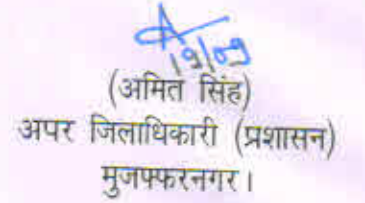 19/09
(अमित सिंह)
अपर जिलाधिकारी (प्रशासन)
मुजफ्फरनगर।